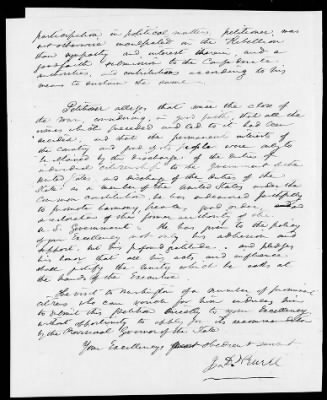 participation in political matters, petitioner was
not otherwise inculpated in the Rebellion
than sympathy and interest therein, and a
good faith submission to the Confederate
authorities, and contributions according to his
means to sustain the same.
Petitioner alleges, that since the close of
the War, considering, in good faith, that all the
which preceded and led to it had been
decided, and that the permanent interests of
the Country and peace of its people were only to
be obtained by the discharge of the duties of
individual citizenship to the Government of the
United States, and discharge of the duties of the
State as a member of the United States under the
common constitution, he has endeavored faithfully
to promote harmony, peace, good order, and
a restoration of the former authority of the
U. S. Government. He has given to the policy
of your Excellency not only his adhesion and
support, but his profound gratitude, and pledges
his honor that all his acts and influence
shall justify the clemency which he asks at
the hands of the Executive.
The visit to Washington of a number of prominent
citizens who can vouch for him induces him
to submit this petition directly to your Excellency
without opportunity to apply for its recommendation
by the Provisional Governor of the State.
Your Excellency's obedient servant